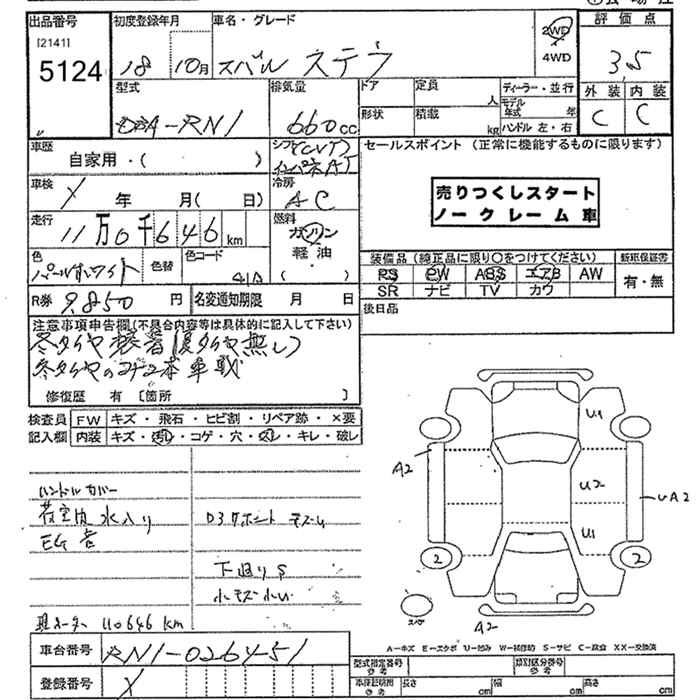 出品番号
初度登録年月
車名・グレード
2WD
4WD
評価点
[2141]
5124
18 10月
スバル ステラ
3.5
型式
排気量
ドア
定員
人
ディーラー・並行
モデル年式 年
外装
内装
DBA-RN1
660cc
形状
積載
kg
ハンドル 左・右
C
C
車歴
自家用・( )
シフト
CVT
インパネAT
セールスポイント (正常に機能するものに限ります)
売りつくしスタート
ノークレーム車
車検
年 月( 日)
冷房
AC
走行
11万0千646km
燃料
ガソリン
軽油
( )
色
パールホワイト
色替
色コード
41A
装備品(純正品に限り○をつけてください)
新車保証書
PS PW ABS エアB AW
SR ナビ TV カワ
有・無
R券
9,850円
名変通知期限 月 日
後日品
注意事項申告欄(不具合内容等は具体的に記入して下さい)
冬タイヤ装着(夏タイヤ無し)
冬タイヤのみ 本車載
修復歴 有 [箇所 ]
検査員記入欄
FW キズ・飛石・ヒビ割・リペア跡・×要
内装 キズ・汚れ・コゲ・穴・欠レ・キレ・破レ
ハンドルカバー
荷室内水入り
EG音
下廻りS
小キズ小凹
現メーター 110646km
U1
A2
U2
UA2
U1
2
2
スペア
A2
A=キズ E=エクボ U=凹み W=補修跡 S=サビ C=腐食 XX=交換済
車台番号
RN1-026451
登録番号
型式指定番号 参考
類別区分番号 参考
車体形状 参考
長さ cm
幅 cm
高さ cm